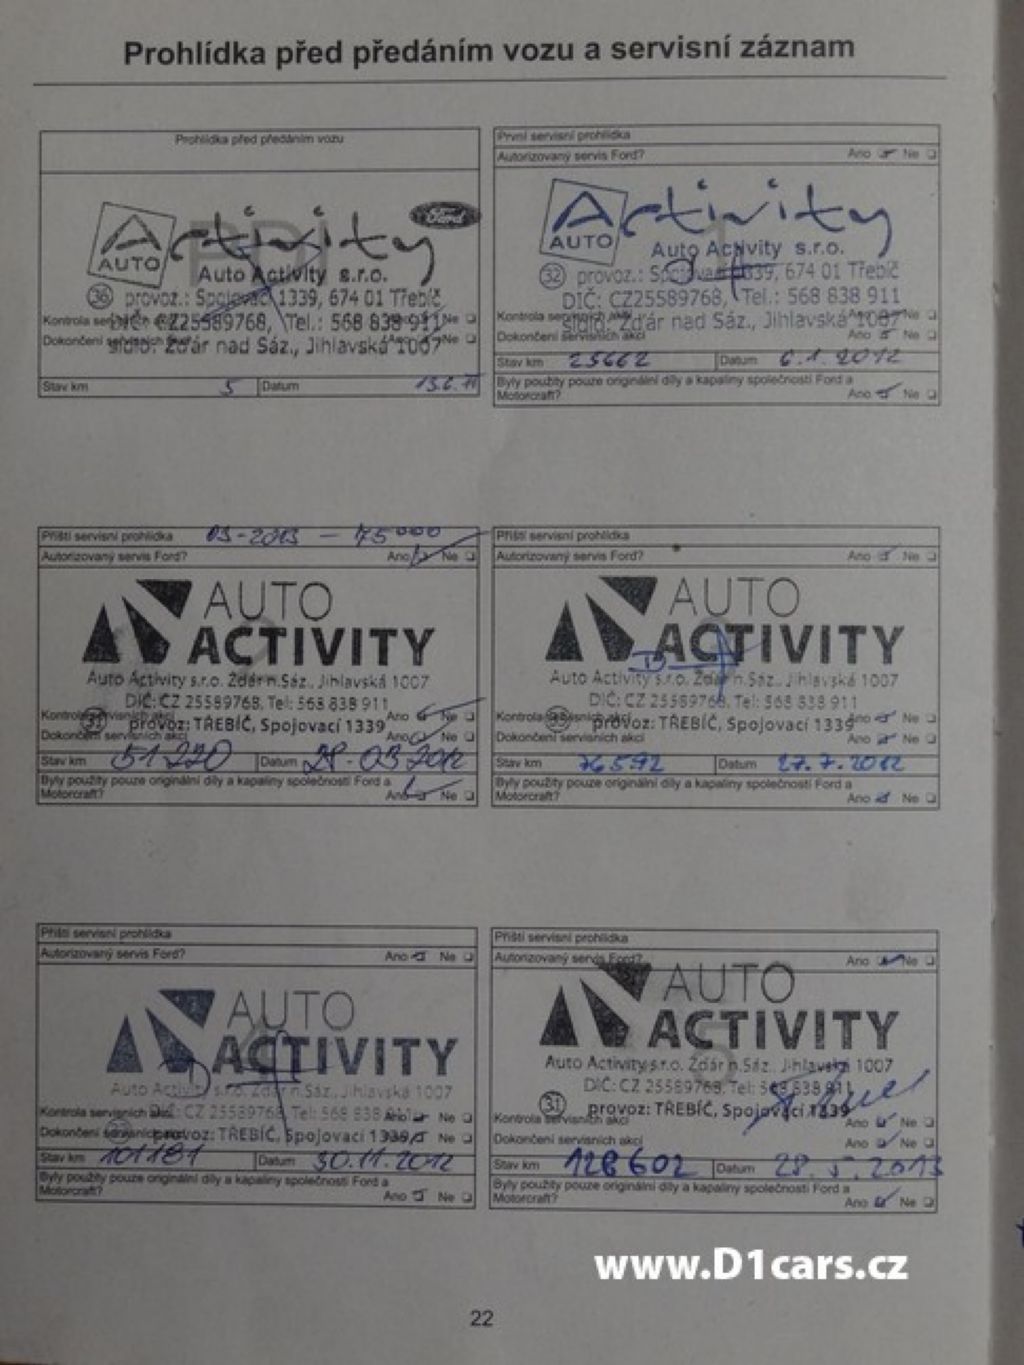 Prohlídka před předáním vozu a servisní záznam
Prohlídka před předáním vozu
Activity
AUTO
Ford
Auto Activity s.r.o.
36 provoz.: Spojovací 1339, 674 01 Třebíč
DIČ: CZ25589768, Tel.: 568 838 911
sídlo: Žďár nad Sáz., Jihlavská 1007
Stav km 5 Datum 13.6.11
První servisní prohlídka
Autorizovaný servis Ford? Ano Ne
Activity
AUTO
Auto Activity s.r.o.
32 provoz.: Spojovací 1339, 674 01 Třebíč
DIČ: CZ25589768, Tel.: 568 838 911
Kontrola servisních akcí Ano Ne
sídlo: Žďár nad Sáz., Jihlavská 1007
Dokončení servisních akcí Ano Ne
Stav km 25662 Datum 6.1.2012
Byly použity pouze originální díly a kapaliny společnosti Ford a
Motorcraft? Ano Ne
Příští servisní prohlídka 03-2013 - 75000
Autorizovaný servis Ford? Ano Ne
AUTO
ACTIVITY
Auto Activity s.r.o. Žďár n.Sáz., Jihlavská 1007
DIČ: CZ 25589768, Tel: 568 838 911
Kontrola servisních akcí Ano Ne
31 provoz: TŘEBÍČ, Spojovací 1339
Dokončení servisních akcí Ano Ne
Stav km 51220 Datum 28-03 2012
Byly použity pouze originální díly a kapaliny společnosti Ford a
Motorcraft? Ano Ne
Příští servisní prohlídka
Autorizovaný servis Ford? Ano Ne
AUTO
ACTIVITY
Auto Activity s.r.o. Žďár n.Sáz., Jihlavská 1007
DIČ: CZ 25589768, Tel: 568 838 911
Kontrola servisních akcí Ano Ne
provoz: TŘEBÍČ, Spojovací 1339
Dokončení servisních akcí Ano Ne
Stav km 76592 Datum 27.7.2012
Byly použity pouze originální díly a kapaliny společnosti Ford a
Motorcraft? Ano Ne
Příští servisní prohlídka
Autorizovaný servis Ford? Ano Ne
AUTO
ACTIVITY
Auto Activity s.r.o. Žďár n.Sáz., Jihlavská 1007
Kontrola servisních DIČ: CZ 25589768, Tel: 568 838 911 Ne
Dokončení servisních provoz: TŘEBÍČ, Spojovací 1339 Ne
Stav km 101181 Datum 30.11.2012
Byly použity pouze originální díly a kapaliny společnosti Ford a
Motorcraft? Ano Ne
Příští servisní prohlídka
Autorizovaný servis Ford? Ano Ne
AUTO
ACTIVITY
Auto Activity s.r.o. Žďár n.Sáz., Jihlavská 1007
DIČ: CZ 25589768, Tel: 568 838 911
31 provoz: TŘEBÍČ, Spojovací 1339
Kontrola servisních akcí Ano Ne
Dokončení servisních akcí Ano Ne
Stav km 128602 Datum 28.5.2013
Byly použity pouze originální díly a kapaliny společnosti Ford a
Motorcraft? Ano Ne
www.D1cars.cz
22